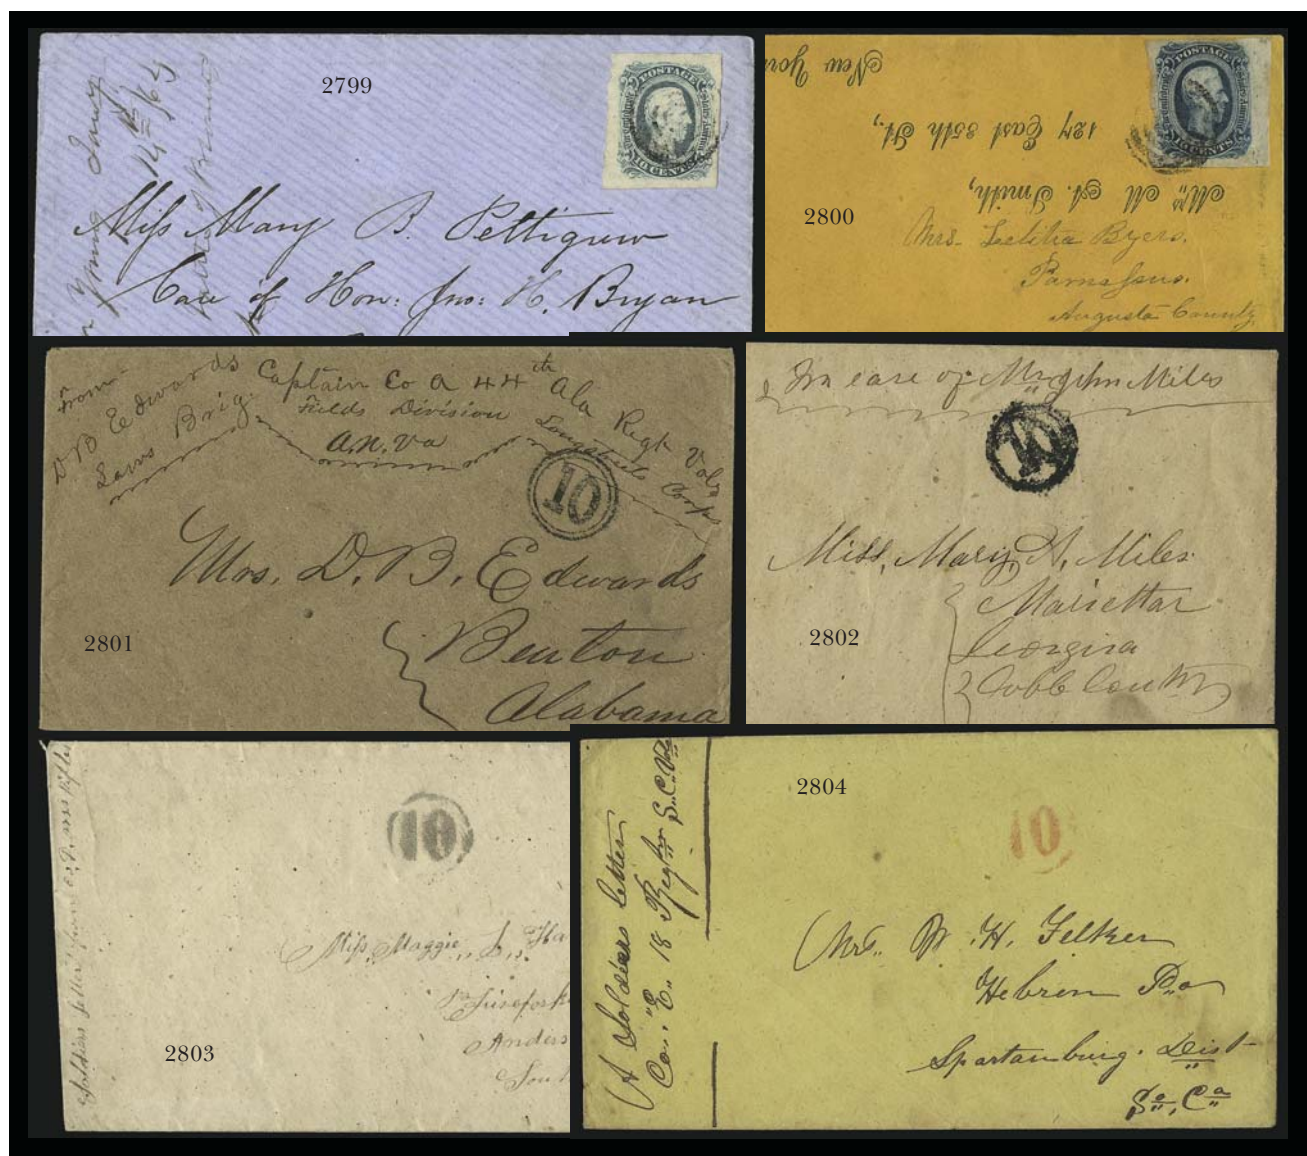 2799
Young
14th /64
Miss Mary B. Pettigrew
Care of Hon: Jno: H. Bryan
POSTAGE
10 CENTS
New York
127 East 35th St.,
Mrs M A. Smith,
POSTAGE
10 CENTS
2800
Mrs. Letitia Byers.
Parnassus.
Augusta County
From
D B Edwards Captain Co A 44th Ala Regt Vols
Laws Brig. Fields Division Longstreets Corps
A.N.Va
10
Mrs. D. B. Edwards
Benton
Alabama
2801
In care of Mr John Miles
10
Miss. Mary, A, Miles
Mariettar
Georgira
Cobb County
2802
Soldiers letter from
10
Miss, Maggie
Anders
Sout
2803
A Soldiers letter
Co. "E" 18 Regt S.C.V
2804
10
Mrs. W. H. Felker
Hebron P.o
Spartanburg. Dist
So, Ca